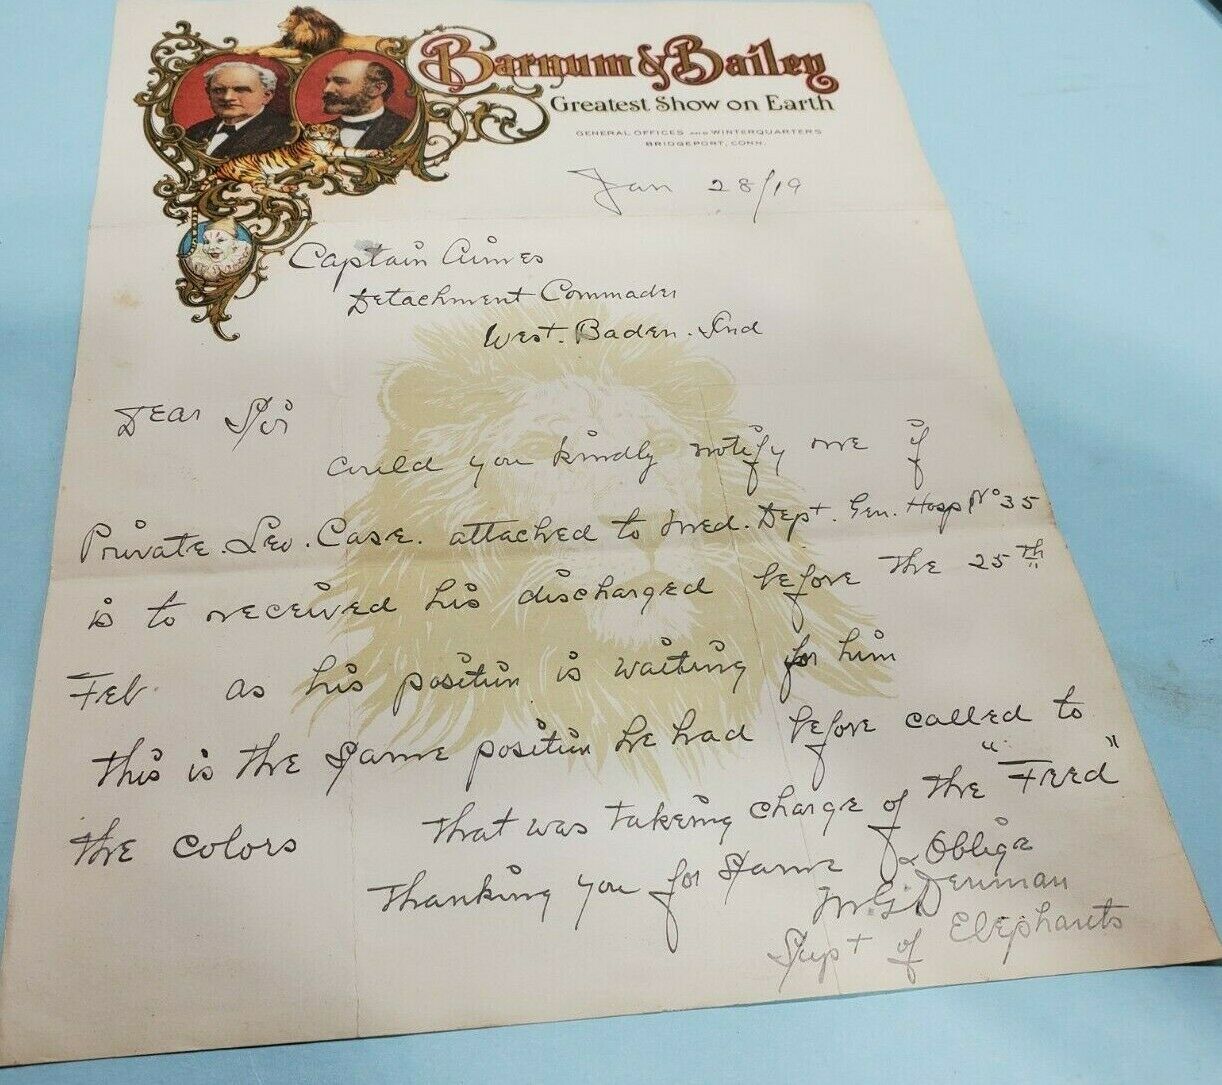 Barnum & Bailey
Greatest Show on Earth
GENERAL OFFICES AND WINTERQUARTERS
BRIDGEPORT, CONN.
Jan 28/19
Captain Aimes
Detachment Commader
West. Baden. Ind
Dear Sir
Could you kindly notify me if
Private. Leo. Case. attached to Med. Dept. Gen. Hosp No 35
is to received his discharged before the 25th
Feb. as his position is waiting for him
this is the same position he had before called to
the colors that was takeing charge of the "Feed"
thanking you for same & Oblige
M.G. Denman
Supt of Elephants